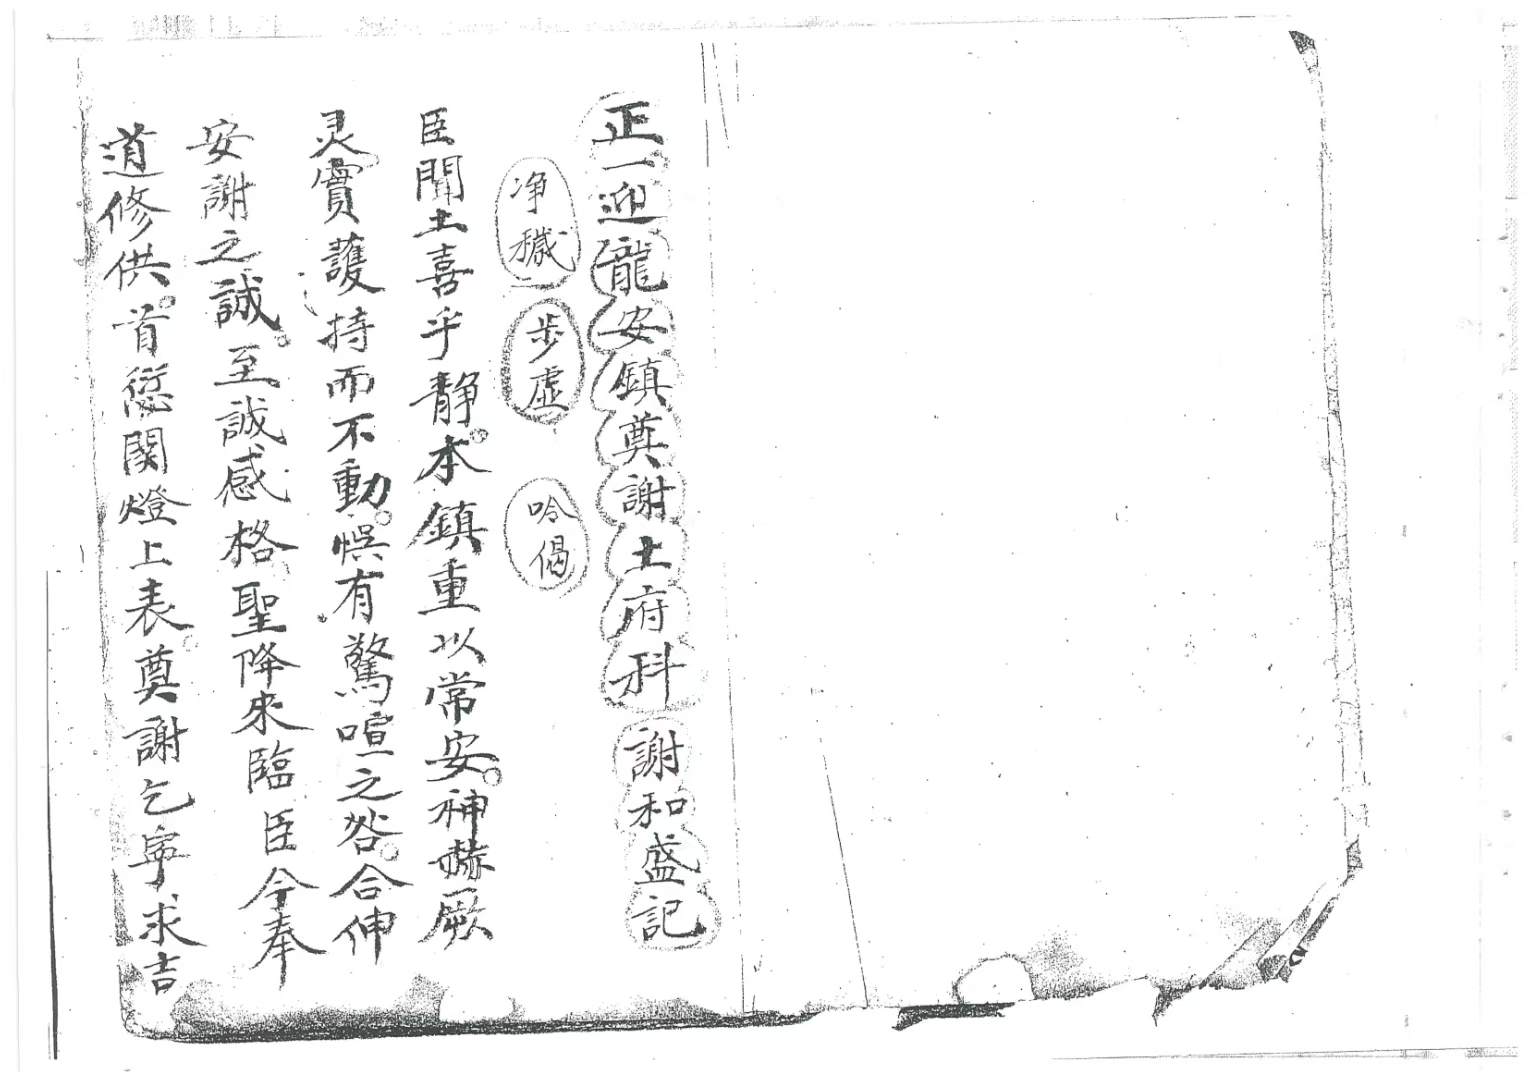 正一迎龍安鎮奠謝土府科 謝和盛記
净穢 步虛 吟偈
臣聞土喜乎静。本鎮重以常安。神赫厥
灵。實護持而不動。悞有驚喧之咎。合伸
安謝之誠。至誠感格聖降來臨臣今奉
道修供。首愆関燈上表。奠謝乞寧求吉